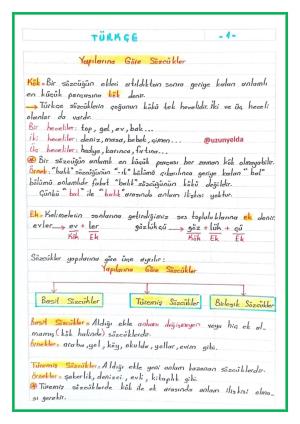 TÜRKÇE -1-
Yapılarına Göre Sözcükler
Kök = Bir sözcüğün ekleri atıldıktan sonra geriye kalan anlamlı
en küçük parçasına kök denir.
→ Türkçe sözcüklerin çoğunun kökü tek hecelidir. İki ve üç heceli
olanlar da vardır.
Bir heceliler: top, gel, ev, bak...
İki heceliler: deniz, masa, bebek, çimen... @uzunyolda
Üç heceliler: hediye, karınca, fırtına...
Bir sözcüğün anlamlı en küçük parçası her zaman kök olmayabilir.
Örnek: "balık" sözcüğünün "-ık" bölümü çıkarılınca geriye kalan "bal"
bölümü anlamlıdır fakat "balık" sözcüğünün kökü değildir.
Çünkü "bal" ile "balık" arasında anlam ilişkisi yoktur.
Ek = Kelimelerin sonlarına getirdiğimiz ses topluluklarına ek denir.
evler → ev + ler gözlükçü → göz + lük + çü
Kök Ek Kök Ek Ek
Sözcükler yapılarına göre üçe ayrılır:
Yapılarına Göre Sözcükler
Basit Sözcükler Türemiş Sözcükler Birleşik Sözcükler
Basit Sözcükler = Aldığı ekle anlamı değişmeyen veya hiç ek al-
mamış (kök halinde) sözcüklerdir.
Örnekler = araba, gel, köy, okulda, yollar, evim gibi.
Türemiş Sözcükler = Aldığı ekle yeni anlam kazanan sözcüklerdir.
Örnekler = şekerlik, denizci, evli, kitaplık gibi.
Türemiş sözcüklerde kök ile ek arasında anlam ilişkisi olma-
sı gerekir.